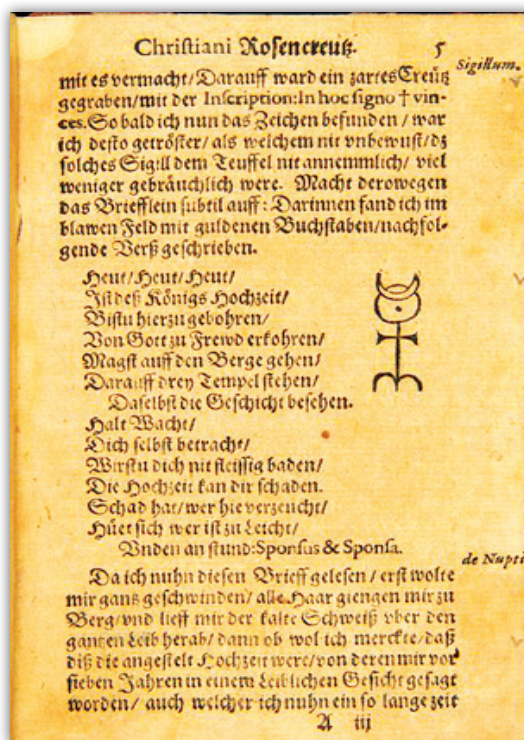 Christiani Rosencreutz. 5
Sigillum.
mit es vermacht/Darauff ward ein zartes Creutz
gegraben/mit der Inscription: In hoc signo † vin-
ces. So bald ich nun das Zeichen befunden / war
ich desto getröster/ als welchem nit vnbewust/dz
solches Sigill dem Teuffel nit annemmlich/ viel
weniger gebräuchlich were. Macht derowegen
das Briefflein subtil auff: Darinnen fand ich im
blawen Feld mit guldenen Buchstaben/nachfol-
gende Verß geschrieben.
Heut/Heut/Heut/
Ist deß Königs Hochzeit/
Bistu hierzu gebohren/
Von Gott zu Frewd erkohren/
Magst auff den Berge gehen/
Darauff drey Tempel stehen/
Daselbst die Geschicht besehen.
Halt Wacht/
Dich selbst betracht/
Wirstu dich nit fleissig baden/
Die Hochzeit kan dir schaden.
Schad hat/wer hie verzeucht/
Hüet sich wer ist zu Leicht/
Vnden an stund: Sponsus & Sponsa.
de Nupti
Da ich nuhn diesen Brieff gelesen / erst wolte
mir gantz geschwinden/ alle Haar giengen mir zu
Berg/vnd lieff mir der kalte Schweiß vber den
gantzen Leib herab/ dann ob wol ich merckte/daß
diß die angestelt Hochzeit were/von deren mir vor
sieben Jahren in einem Leiblichen Gesicht gesagt
worden/ auch welcher ich nuhn ein so lange zeit
A iij